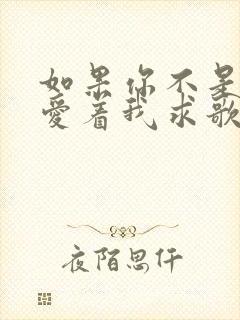 如果你不是
爱着我求歌
夜陌思仟